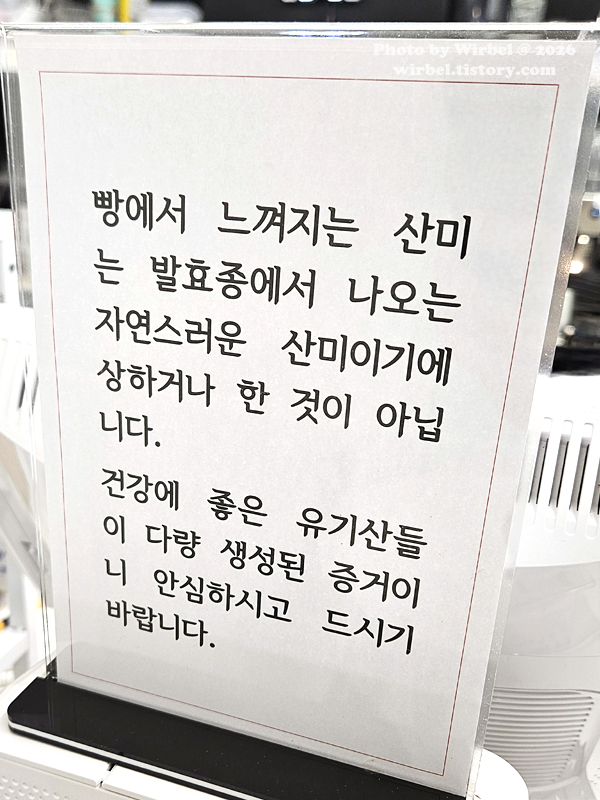 Photo by Wirbel @ 2026
wirbel.tistory.com
빵에서 느껴지는 산미
는 발효종에서 나오는
자연스러운 산미이기에
상하거나 한 것이 아닙
니다.
건강에 좋은 유기산들
이 다량 생성된 증거이
니 안심하시고 드시기
바랍니다.